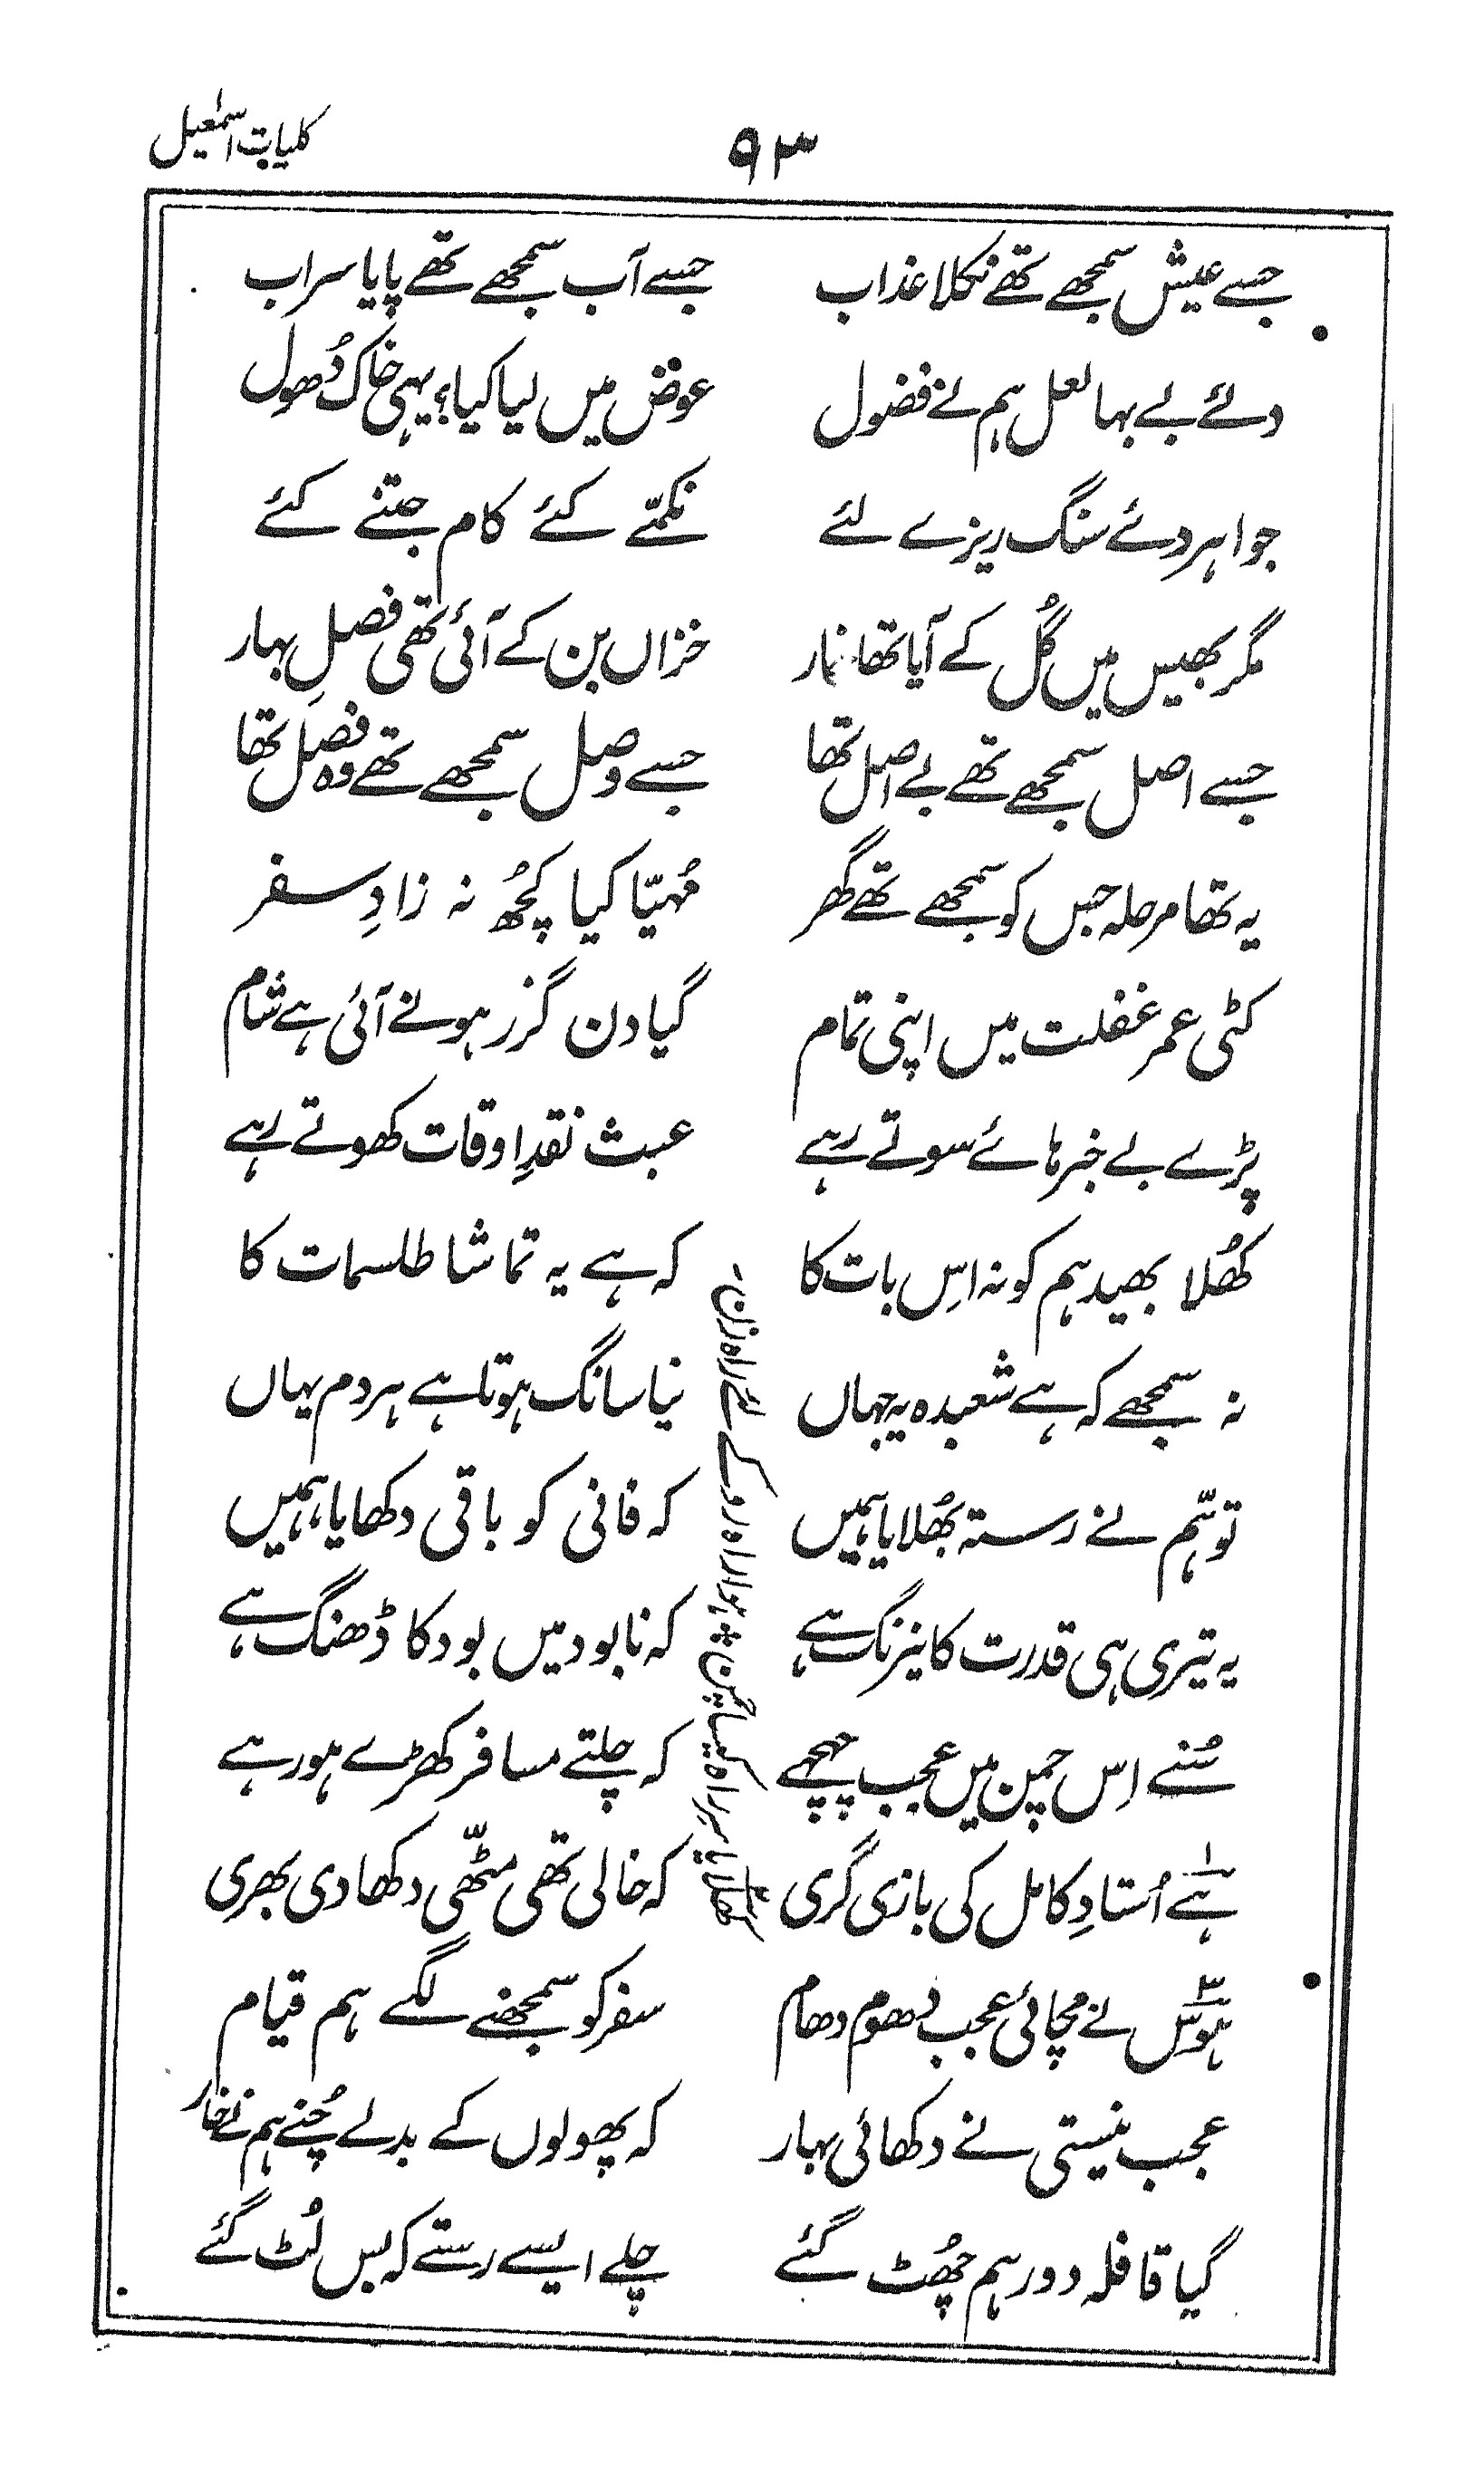 ۹۳
کلیات اسمٰعیل
جسے عیش سمجھے تھے نکلا عذاب جسے آب سمجھے تھے پایا سراب
دئے بے بہا لعل ہم نے فضول عوض میں لیا کیا؟ یہی خاک دُھول
جواہر دئے سنگ ریزے لئے نکمّے کئے کام جتنے کئے
مگر بھیس میں گُل کے آیا تھا خار خزاں بن کے آئی تھی فصلِ بہار
جسے اصل سمجھے تھے بے اصل تھا جسے وصل سمجھے تھے وہ فصل تھا
یہ تھا مرحلہ جس کو سمجھے تھے گھر مُہیّا کیا کچُھ نہ زادِ سفر
کٹی عمر غفلت میں اپنی تمام گیا دن گزر ہونے آئی ہے شام
پڑے بے خبر ہائے سوتے رہے عبث نقدِ اوقات کھوتے رہے
کھُلا بھید ہم کو نہ اِس بات کا کہ ہے یہ تماشا طلسمات کا
نہ سمجھے کہ ہے شعبدہ یہ جہاں نیا سانگ ہوتا ہے ہر دم یہاں
توہّم نے رستہ بھُلایا ہمیں کہ فانی کو باقی دکھایا، ہمیں
یہ تیری ہی قدرت کا نیرنگ ہے کہ نابود میں بود کا ڈھنگ ہے
سُنے اس چمن میں عجب چہچہے کہ چلتے مسافر کھڑے ہو رہے
ہے ۱ اُستادِ کامل کی بازی گری کہ خالی تھی مٹّھی دکھا دی بھری
ہوس ۳ نے مچائی عجب دھوم دھام سفر کو سمجھنے لگے ہم قیام
عجب نیستی نے دکھائی بہار کہ پھولوں کے بدلے چُنے ہم نے خار
گیا قافلہ دور ہم چھُٹ گئے چلے ایسے رستے کہ بس لُٹ گئے
کھلایا سرِ راہ کیسا چمن ٭ ہوا راہ رو کے لئے راہ زن۔